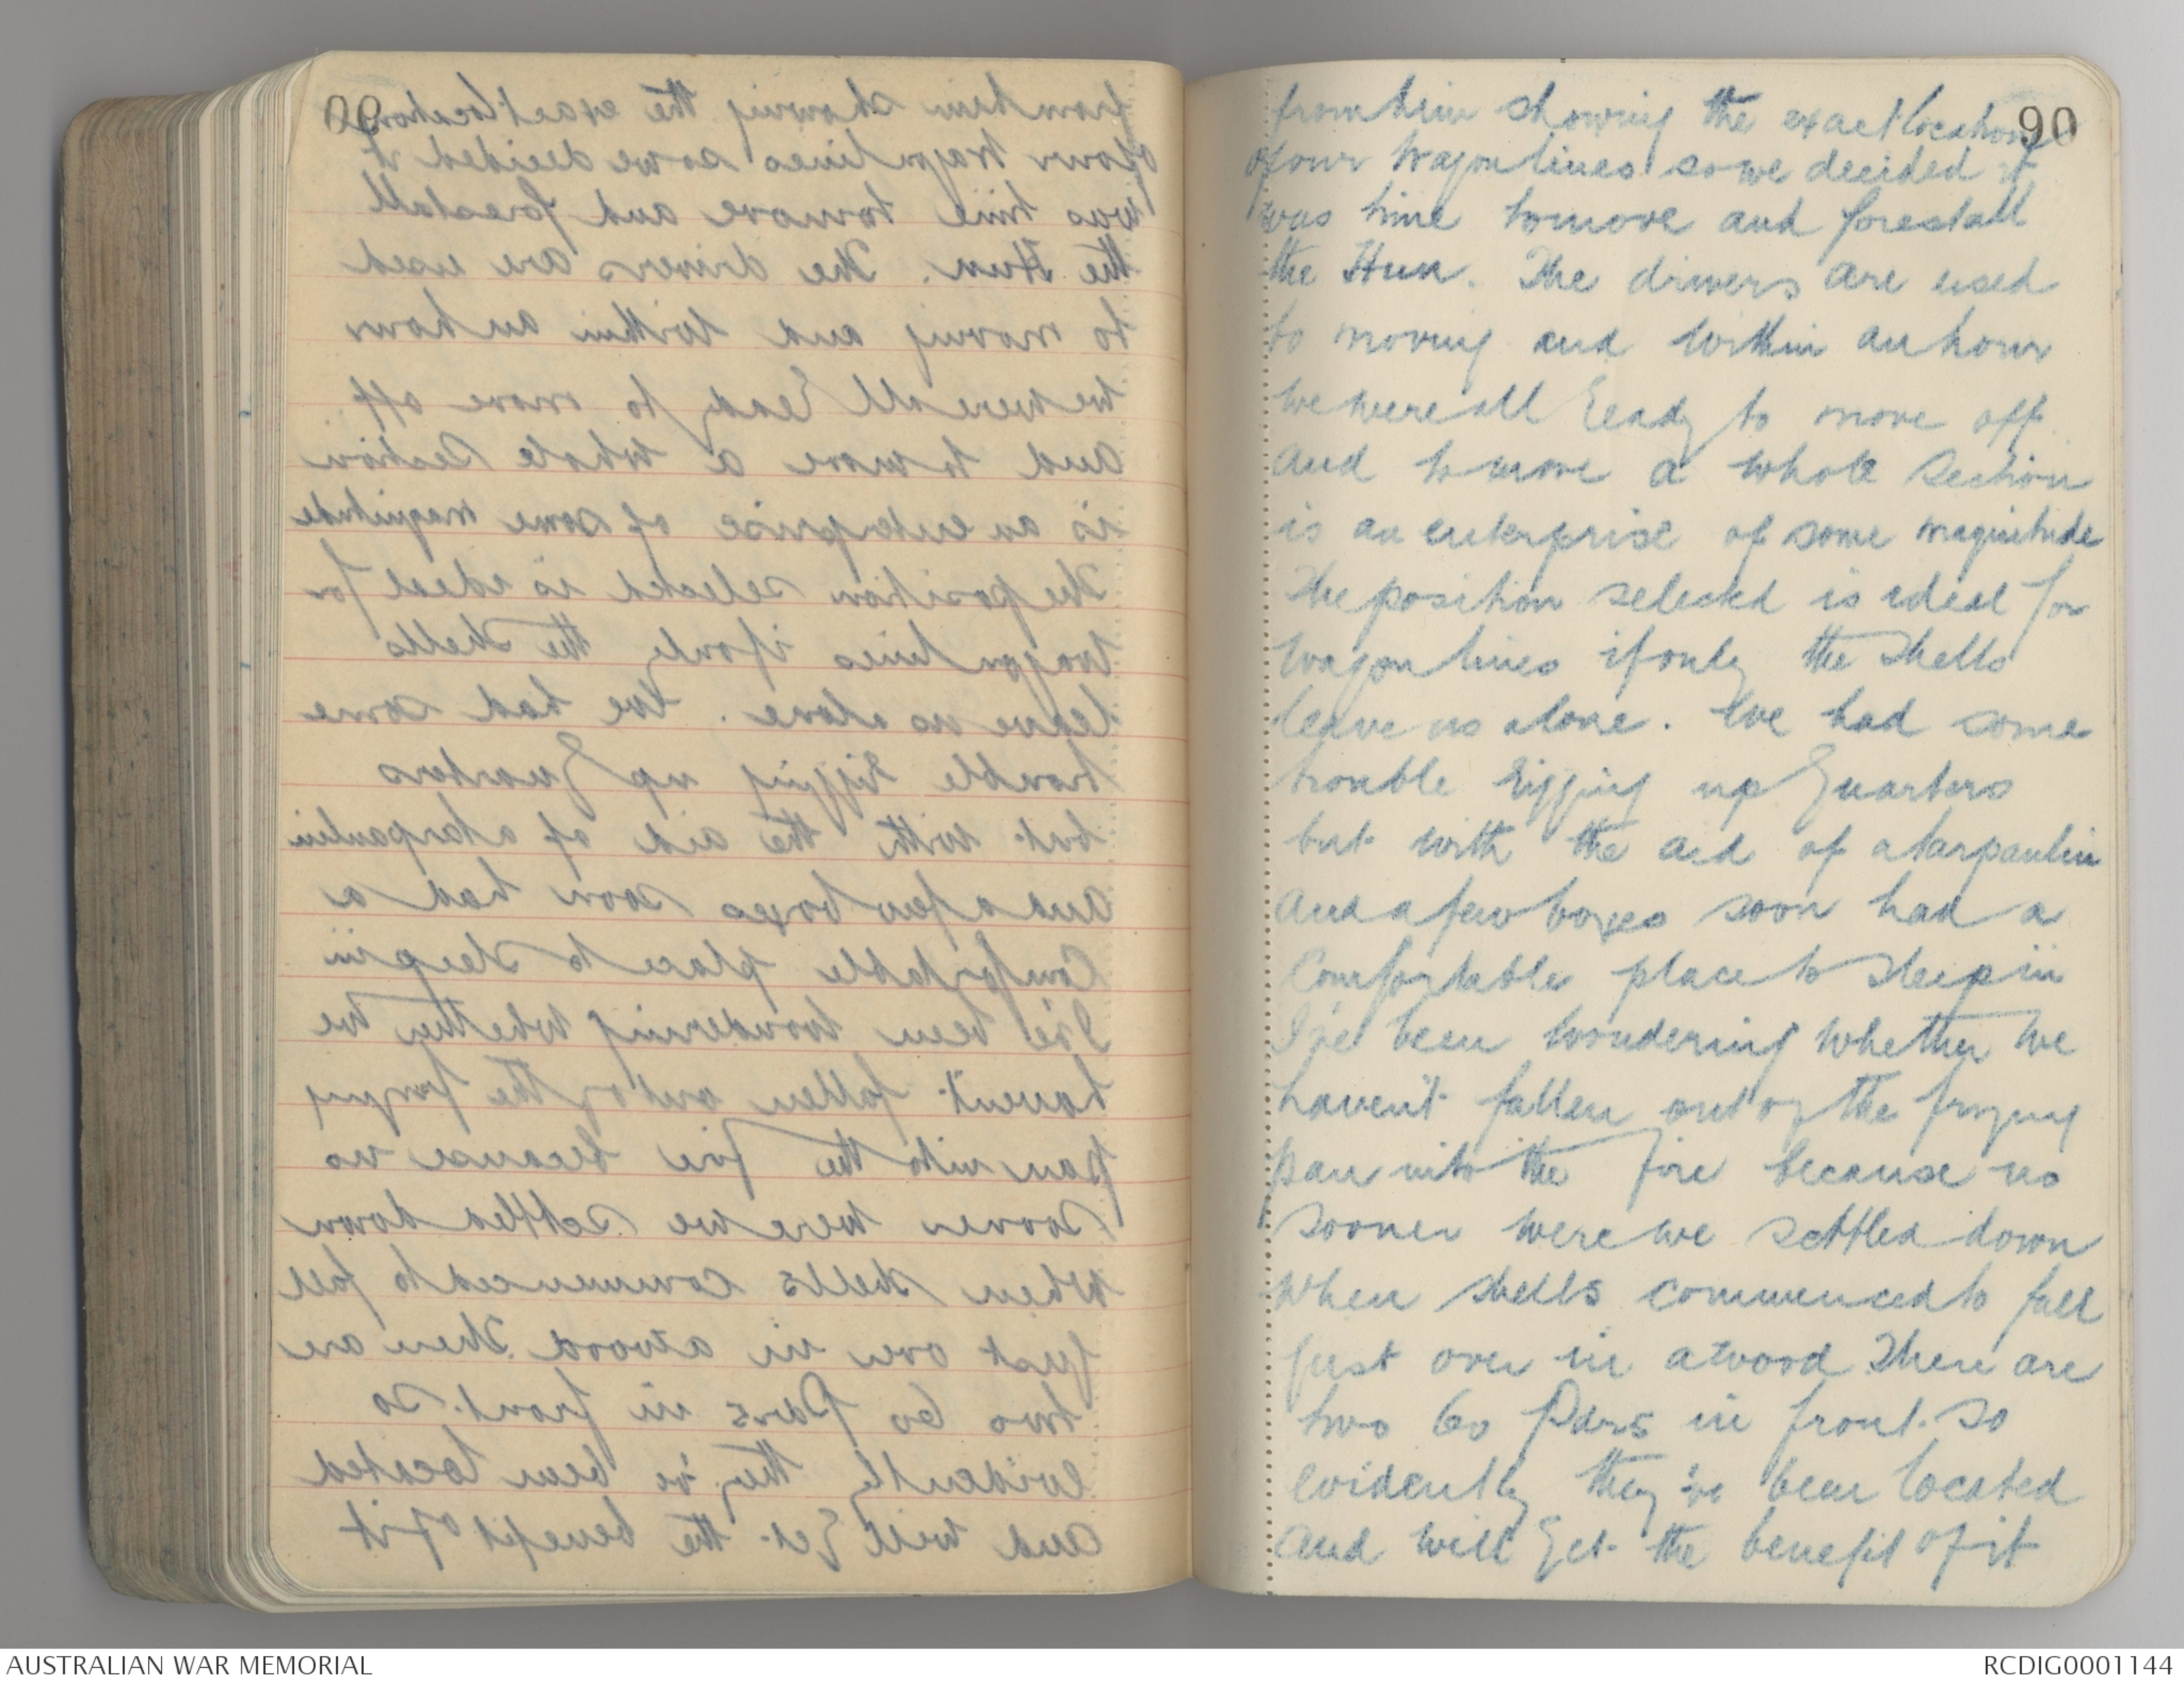 90
from him showing the exact location
of our wagon lines so we decided it
was time to move and forestall
the Hun. The drivers are used
to moving and within an hour
we were all ready to move off
and to move a whole section
is an enterprise of some magnitude
The position selected is ideal for
wagon lines if only the shells
leave us alone. We had some
trouble rigging up Quarters
but with the aid of a tarpaulin
and a few boxes soon had a
Comfortable place to sleep in
I've been wondering whether we
havent fallen out of the frying
pan into the fire because no
sooner were we settled down
when shells commenced to fall
just over in a wood There are
two 60 Pdrs in front so
evidently they've been located
and will get the benefit of it
AUSTRALIAN WAR MEMORIAL
RCDIG0001144